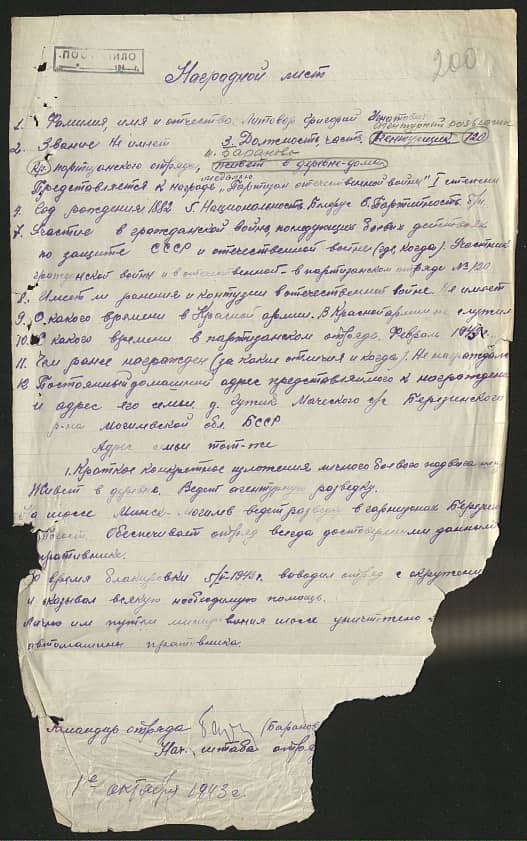 ПОСТУПИЛО
200
Наградной лист
1. Фамилия, имя и отчество. Литовар Григорий Игнатович
агентурный разведчик
2. Звание Не имеет 3. Должность, часть,
т. Баранова
партизанского отряда, живет в деревне-дома
Представляется к награде медалью „Партизан отечественной войны" I степени
4. Год рождения 1892 5. Национальность Белорус 6. Партийность б/п.
7. Участие в гражданской войне, последующих боевых действиях
по защите СССР и отечественной войне (где, когда). Участник
гражданской войны и в отечественной - в партизанском отряде №
8. Имеет ли ранения и контузии в отечественной войне. Не имеет
9. С какого времени в Красной армии. В Красной армии не служил
10. С какого времени в партизанском отряде. Февраль 1943г.
11. Чем ранее награжден (за какие отличия и когда). Не награждался
12. Постоянный домашний адрес представляемого к награждению
и адрес его семьи. д. Маческого с/с Березинского
р-на Могилевской обл. БССР
Адрес семьи тот-же
1. Краткое конкретное изложение личного боевого подвига
Живет в деревне. Ведет агентурную разведку.
На шоссе Минск-Могилев ведет разведку в гарнизонах
Погост. Обеспечивает отряд всегда достоверными данными
противнике.
Во время блокировки 1943г. выводил отряд с окружени
и оказывал всякую необходимую помощь.
Лично им путем минирования шоссе уничтожено
автомашины противника.
Командир отряда (Баранов
Нач. штаба отря
1го октября 1943 г.